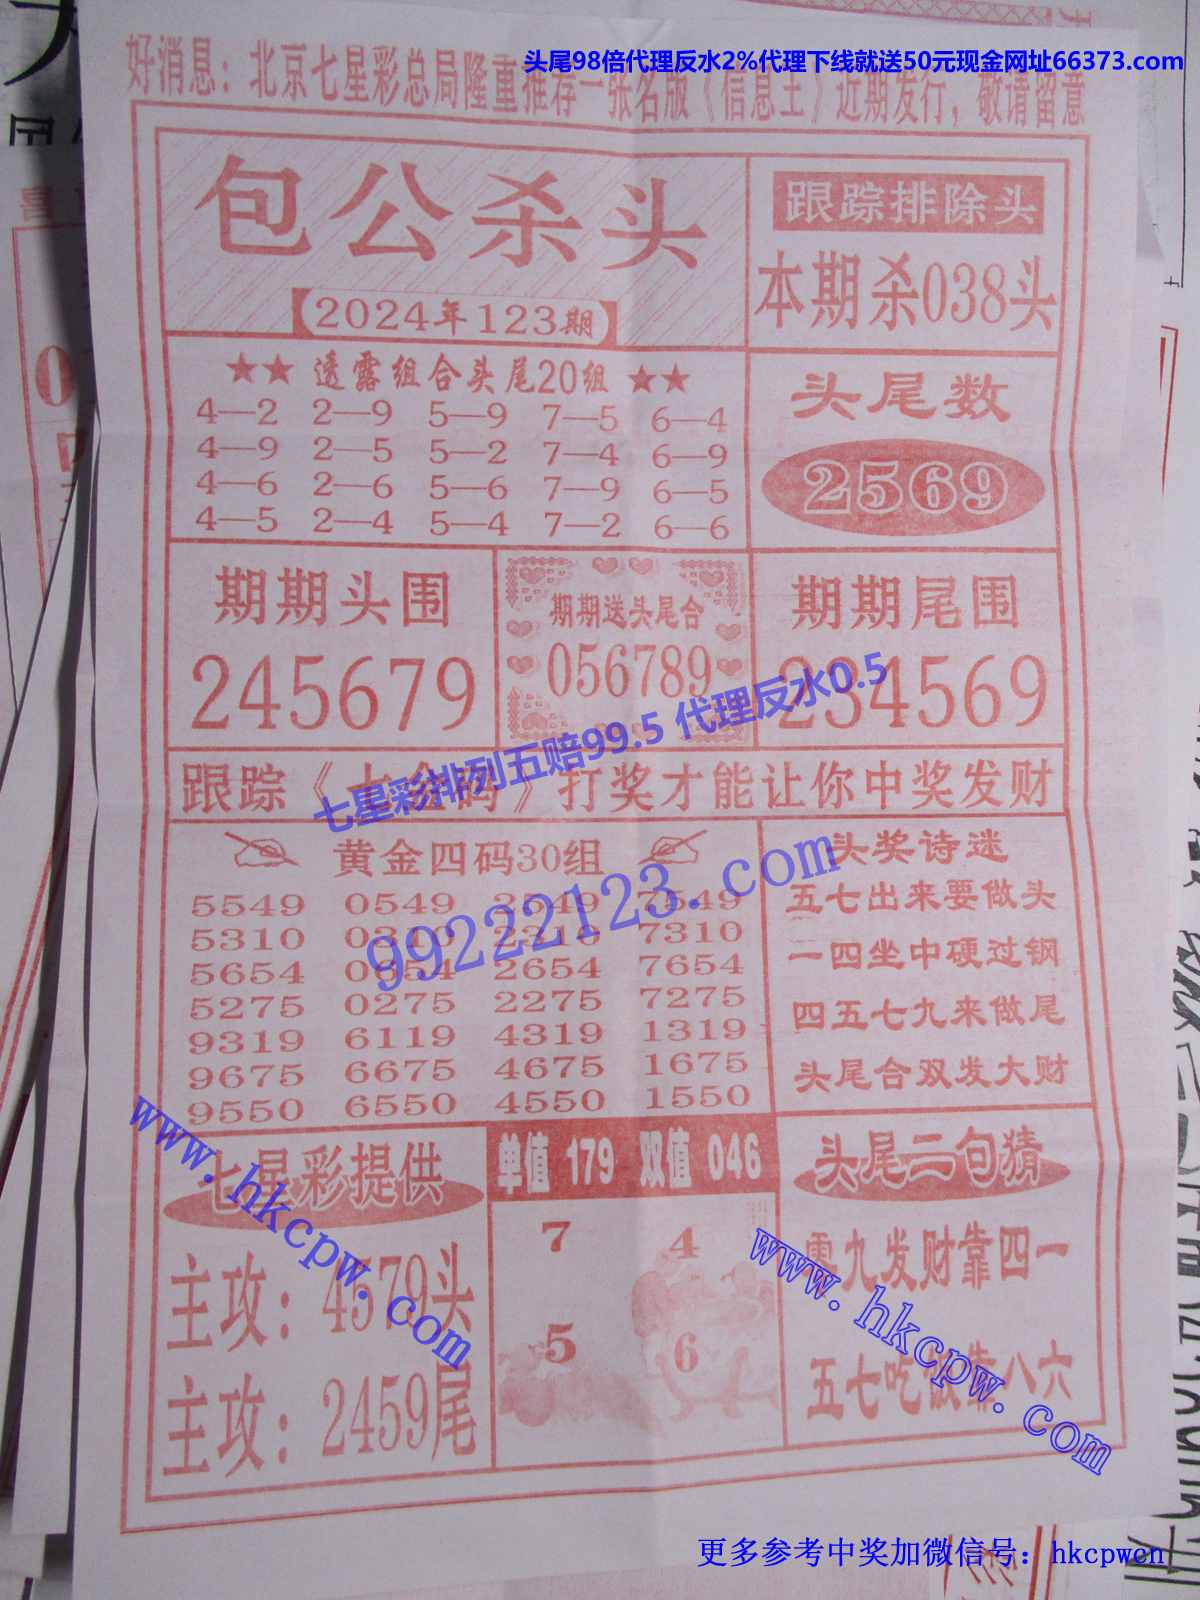 头尾98倍代理反水2%代理下线就送50元现金网址66373.com
好消息：北京七星彩总局隆重推荐一张名版《信息王》近期发行，敬请留意
包公杀头
【2024年123期】
跟踪排除头
本期杀038头
★★ 透露组合头尾20组 ★★
4—2 2—9 5—9 7—5 6—4
4—9 2—5 5—2 7—4 6—9
4—6 2—6 5—6 7—9 6—5
4—5 2—4 5—4 7—2 6—6
头尾数
2569
期期头围
245679
期期送头尾合
056789
期期尾围
234569
七星彩排列五赔99.5 代理反水0.5
跟踪《七金码》打奖才能让你中奖发财
黄金四码30组
5549 0549 2549 7549
5310 0310 2310 7310
5654 0654 2654 7654
5275 0275 2275 7275
9319 6119 4319 1319
9675 6675 4675 1675
9550 6550 4550 1550
99222123.com
头奖诗迷
五七出来要做头
一四坐中硬过钢
四五七九来做尾
头尾合双发大财
七星彩提供
主攻：4579头
主攻：2459尾
www.hkcpw.com
单值 179 双值 046
7 4
5 6
头尾二句猜
零九发财靠四一
五七吃饭靠八六
www.hkcpw.com
更多参考中奖加微信号：hkcpwcn